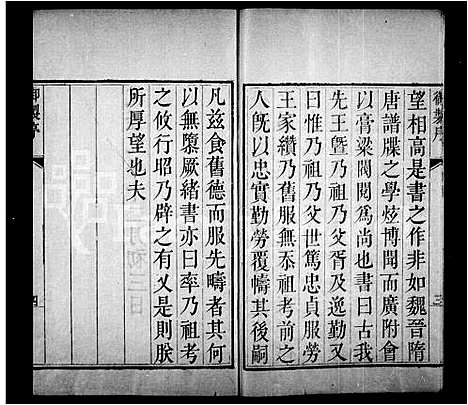 御製序
三
望相高是書之作非如魏晉隋
唐譜牒之學炫博聞而廣附會
以膏粱閥閱爲尚也書曰古我
先王曁乃祖乃父胥及逸勤又
曰惟乃祖乃父世篤忠貞服勞
王家纘乃舊服無忝祖考前
人旣以忠實勤勞覆幬其後嗣
凡兹食舊德而服先疇者其何
以無墮厥緒書亦曰率乃祖考
之攸行昭乃辟之有乂是則朕
所厚望也夫
月初二日
御製序
四